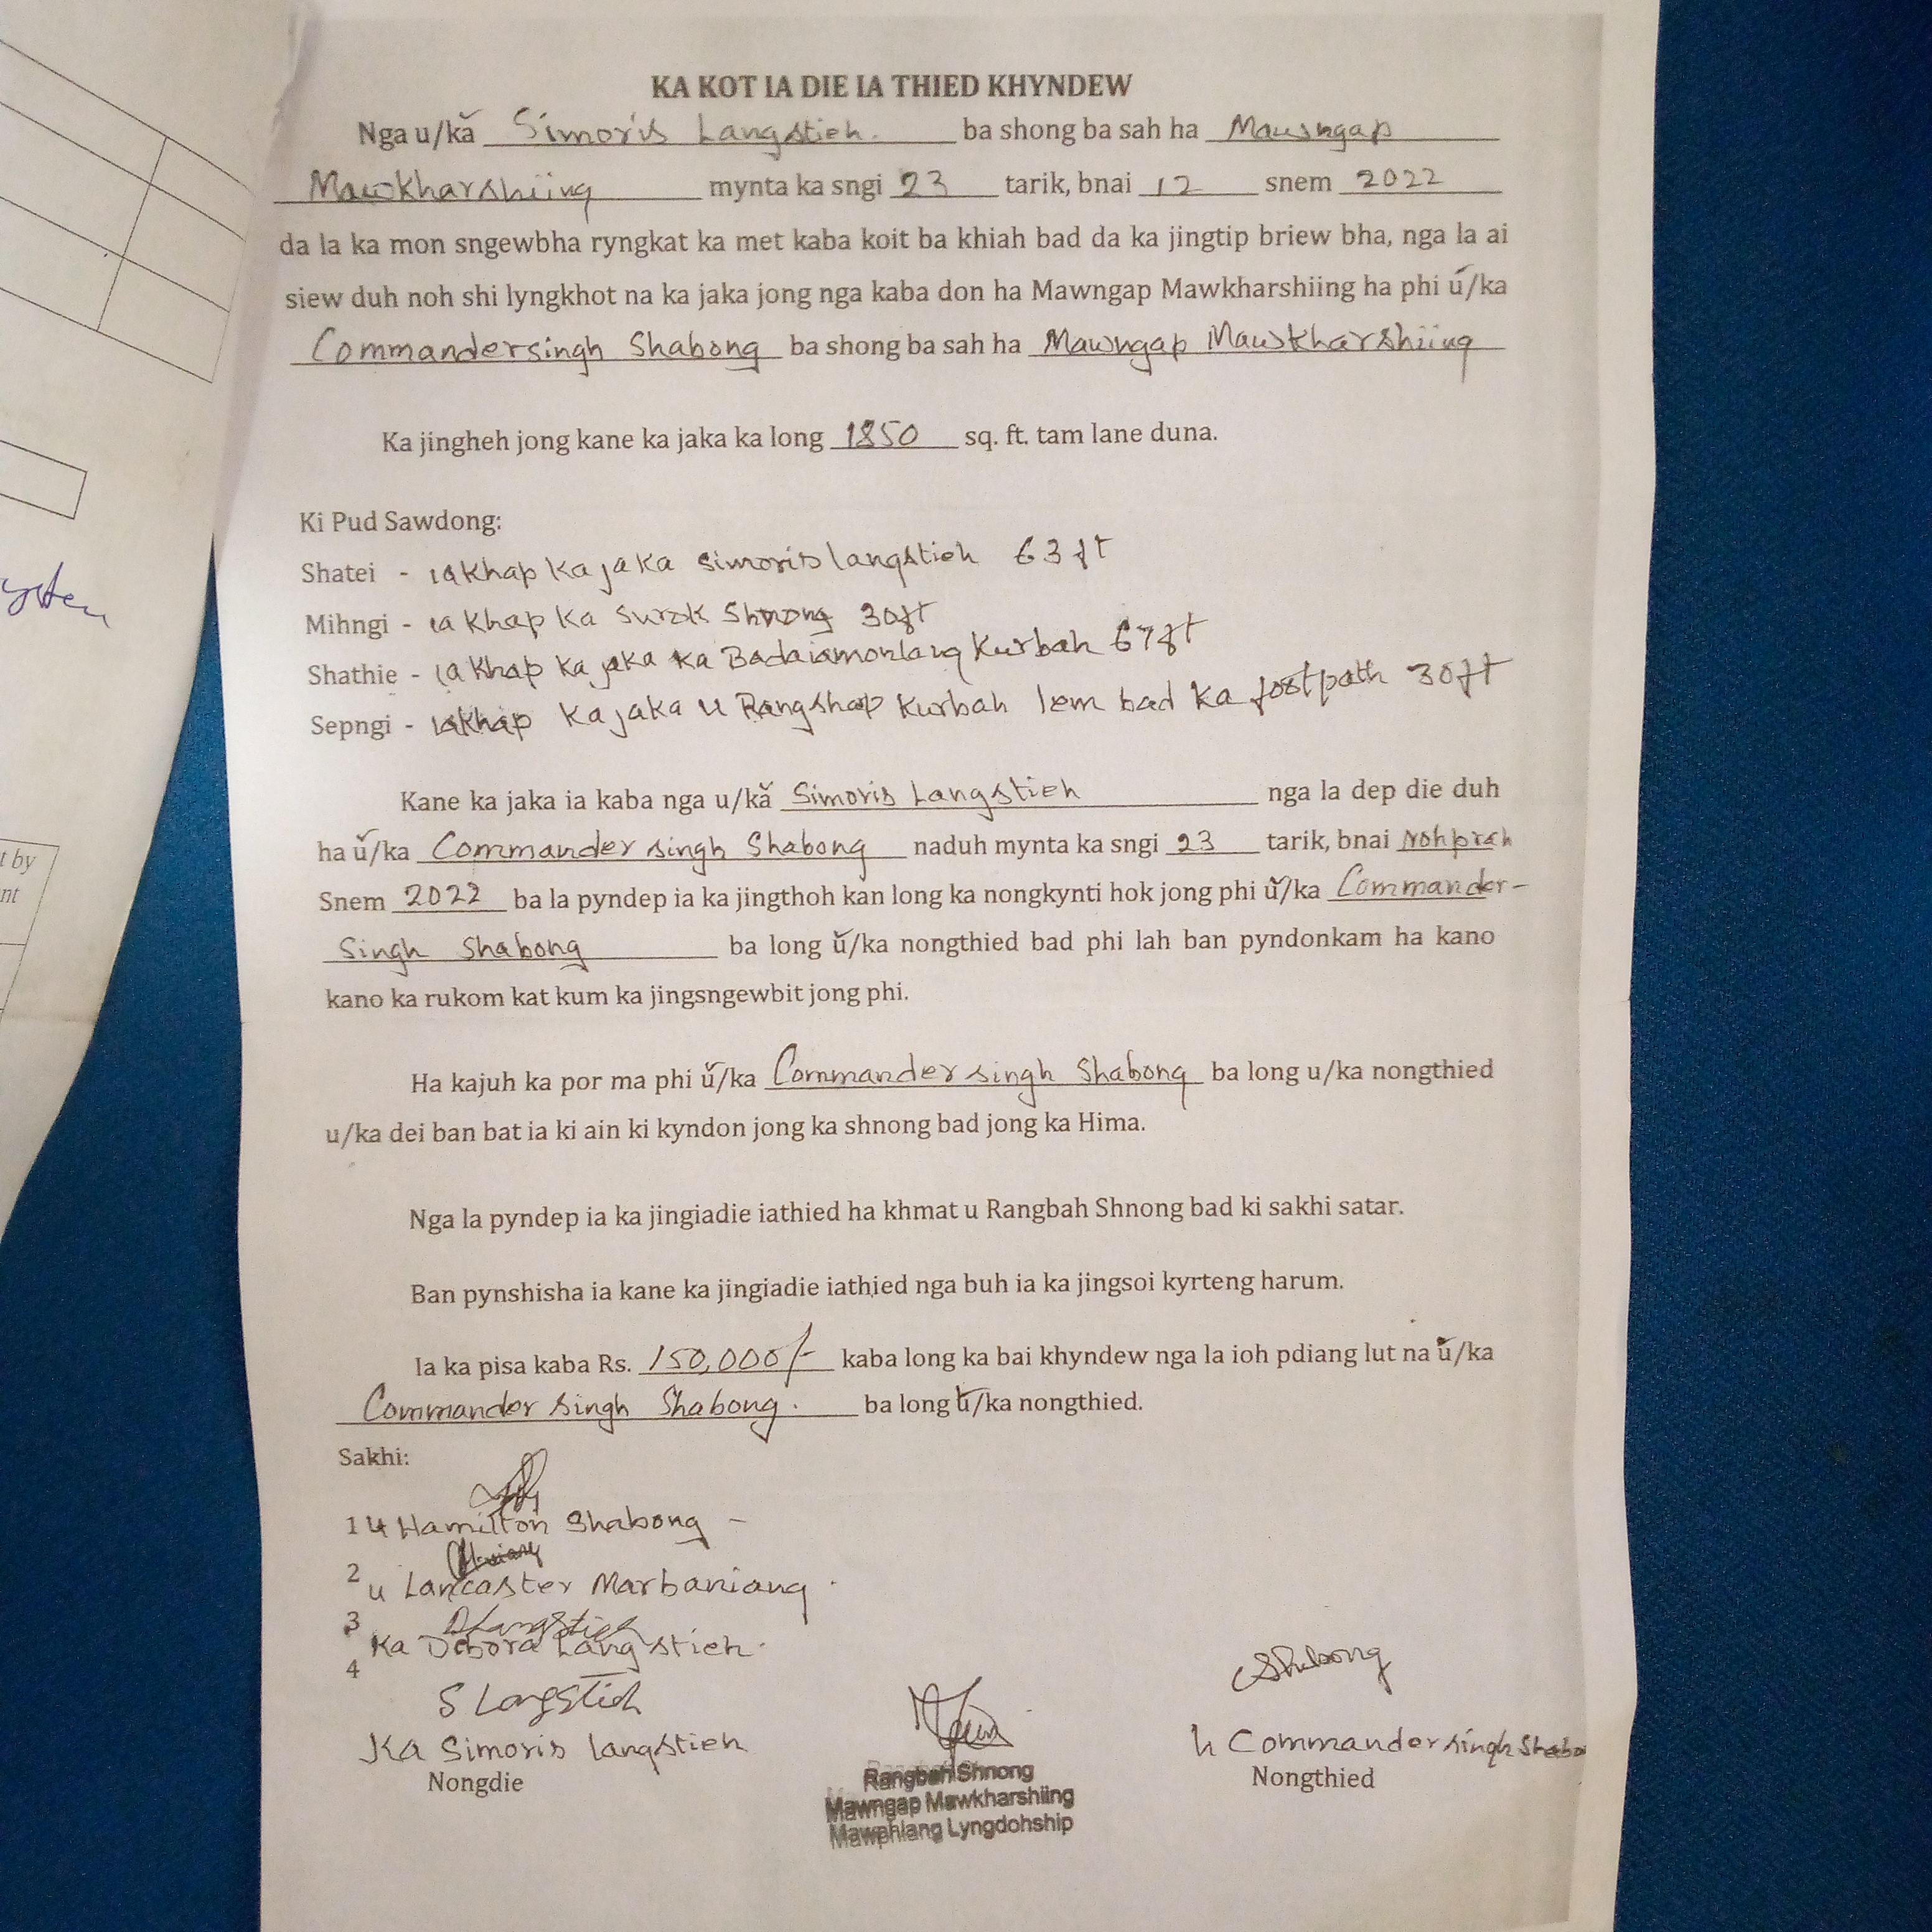 KA KOT IA DIE IA THIED KHYNDEW
Nga u/ka Simoris Langstieh. ba shong ba sah ha Mawngap
Mawkharshiing mynta ka sngi 23 tarik, bnai 12 snem 2022
da la ka mon sngewbha ryngkat ka met kaba koit ba khiah bad da ka jingtip briew bha, nga la ai
siew duh noh shi lyngkhot na ka jaka jong nga kaba don ha Mawngap Mawkharshiing ha phi u/ka
Commandersingh Shabong ba shong ba sah ha Mawngap Mawkharshiing
Ka jingheh jong kane ka jaka ka long 1850 sq. ft. tam lane duna.
Ki Pud Sawdong:
Shatei - iakhap ka jaka simoris langstieh 63 ft
Mihngi - ia khap ka surok Shnong 30ft
Shathie - ia khap ka jaka ka Badaiamonlang Kurbah 67ft
Sepngi - iakhap ka jaka u Rangshap Kurbah lem bad ka footpath 30ft
Kane ka jaka ia kaba nga u/ka Simoris Langstieh nga la dep die duh
ha u/ka Commander singh Shabong naduh mynta ka sngi 23 tarik, bnai Nohprah
Snem 2022 ba la pyndep ia ka jingthoh kan long ka nongkynti hok jong phi u/ka Commander-
Singh Shabong ba long u/ka nongthied bad phi lah ban pyndonkam ha kano
kano ka rukom kat kum ka jingsngewbit jong phi.
Ha kajuh ka por ma phi u/ka Commander singh Shabong ba long u/ka nongthied
u/ka dei ban bat ia ki ain ki kyndon jong ka shnong bad jong ka Hima.
Nga la pyndep ia ka jingiadie iathied ha khmat u Rangbah Shnong bad ki sakhi satar.
Ban pynshisha ia kane ka jingiadie iathied nga buh ia ka jingsoi kyrteng harum.
Ia ka pisa kaba Rs. 150,000/- kaba long ka bai khyndew nga la ioh pdiang lut na u/ka
Commander singh Shabong. ba long u/ka nongthied.
Sakhi:
1 U Hamilton Shabong -
2 u Lancaster Marbaniang.
3 DLangstieh
Ka Debora Langstieh.
4
S Langstieh
Ka Simoris langstieh
Nongdie
Rangbah Shnong
Mawngap Mawkharshiing
Mawphlang Lyngdohship
CShabong
U Commander singh Shabo
Nongthied
t by
nt